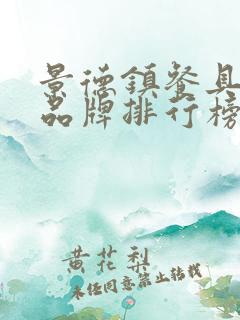 景德鎮餐具
品牌排行榜
黄花梨
未经同意禁止转载